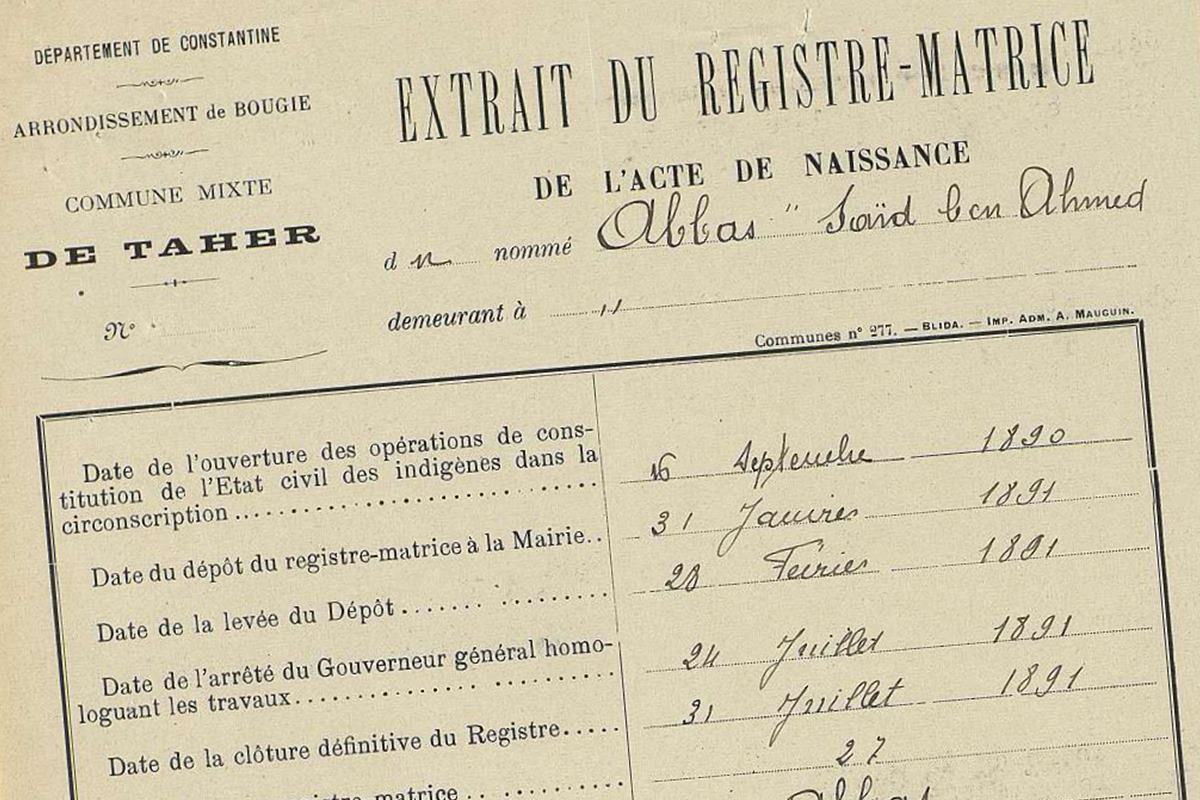 DÉPARTEMENT DE CONSTANTINE
ARRONDISSEMENT de BOUGIE
COMMUNE MIXTE
DE TAHER
N°
EXTRAIT DU REGISTRE-MATRICE
DE L'ACTE DE NAISSANCE
d u nommé Abbas " Saïd ben Ahmed
demeurant à "
Communes n° 277. — BLIDA. — IMP. ADM. A. MAUGUIN.
Date de l'ouverture des opérations de cons-
titution de l'Etat civil des indigènes dans la
circonscription 16 Septembre 1890
Date du dépôt du registre-matrice à la Mairie.. 31 Janvier 1891
Date de la levée du Dépôt 28 Février 1891
Date de l'arrêté du Gouverneur général homo-
loguant les travaux 24 Juillet 1891
Date de la clôture définitive du Registre 31 Juillet 1891
matrice 27
Abbas